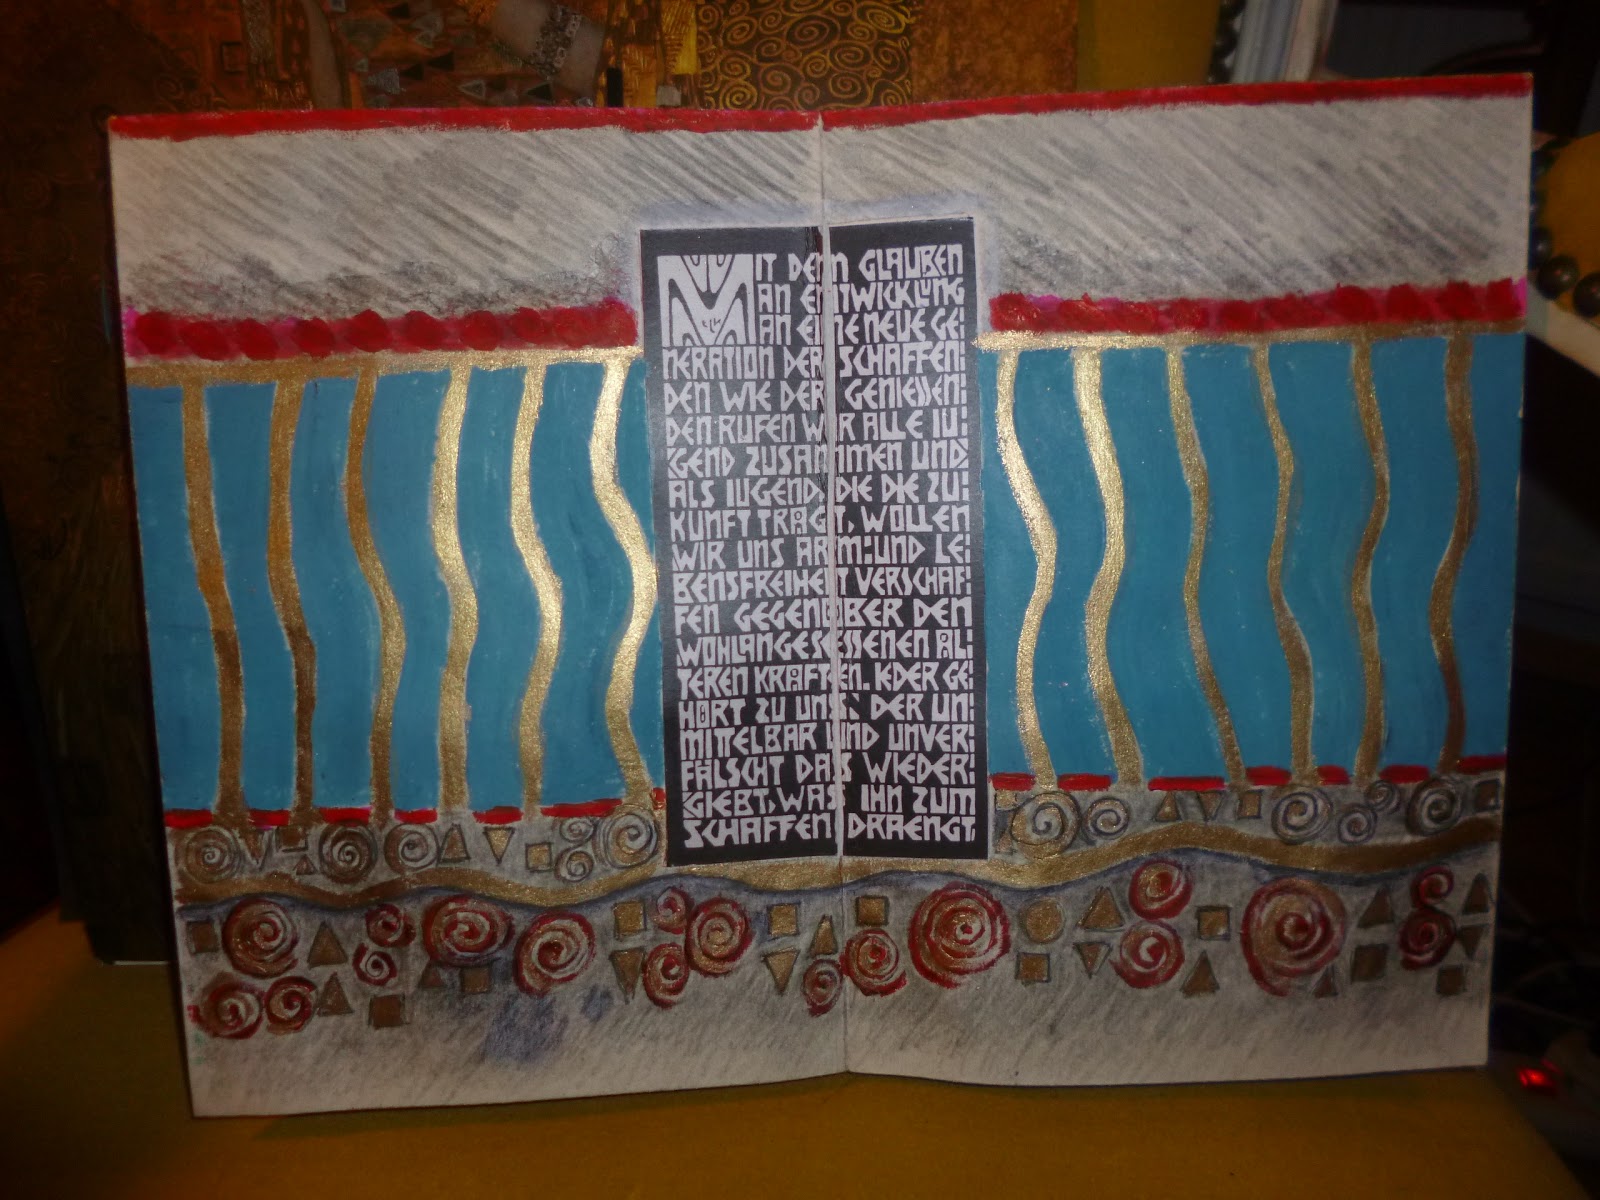 MIT DEM GLAUBEN
AN ENTWICKLUNG
AN EINE NEUE GE:
NERATION DER SCHAFFEN:
DEN WIE DER GENIESSEN:
DEN RUFEN WIR ALLE IU:
GEND ZUSAMMEN UND:
ALS IUGEND, DIE DIE ZU:
KUNFT TRÄGT, WOLLEN
WIR UNS ARM: UND LE:
BENSFREIHEIT VERSCHAF:
FEN GEGENÜBER DEN
WOHLANGESESSENEN ÄL:
TEREN KRÄFTEN. IEDER GE:
HÖRT ZU UNS, DER UN:
MITTELBAR UND UNVER:
FÄLSCHT DAS WIEDER:
GIEBT, WAS IHN ZUM
SCHAFFEN DRAENGT.